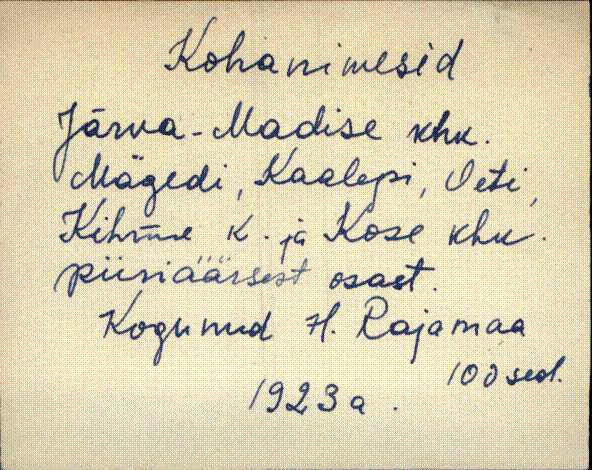 Kohanimesid
Järva-Madise khk.
Mägedi, Kaalepi, Oeti,
Kihme k. ja Kose khk.
piiriäärsest osast.
Kogunud H. Rajamaa
100 sed.
1923 a.